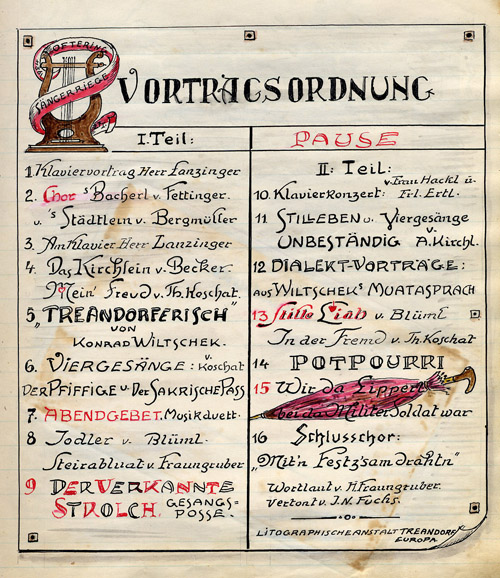 VON OFTERING
SÄNGERRIEGE
VORTRAGSORDNUNG
I. Teil:
1 Klaviervortrag Herr Lanzinger
2. Chor 's Bacherl v. Fettinger.
u. 's Städtlein v. Bergmüller
3. Am Klavier Herr Lanzinger
4. Das Kirchlein v. Becker.
Mein' Freud v. Th. Koschat.
5 „TREANDORFERISCH"
VON
KONRAD WILTSCHEK.
6. VIERGESÄNGE: v. Koschat
DER PFIFFIGE u. DER SAKRISCHE PASS
7. ABENDGEBET. Musikduett.
8 Jodler v. Blüml.
Steirabluat v. Fraungruber
9 DER VERKANNTE
STROLCH. GESANGS-
POSSE.
PAUSE
II: Teil:
10. Klavierkonzert: v. Frau Hackl u.
Frl. Ertl.
11 STILLEBEN u. Viergesänge
UNBESTÄNDIG v. A. Kirchl.
12 DIALEKT-VORTRÄGE:
AUS WILTSCHEK'S MUATASPRACH
13 Stille Liab v. Blüml
In der Fremd v. Th. Koschat
14 POTPOURRI
15 Wir da Lippert
bei da Militer Soldat war
16 Schlusschor:
„Mit'n Festz'sam drahtn"
Wortlaut v. H. Fraungruber.
Vertont v. J. N. Fuchs.
LITOGRAPHISCHE ANSTALT TREANDORF
EUROPA